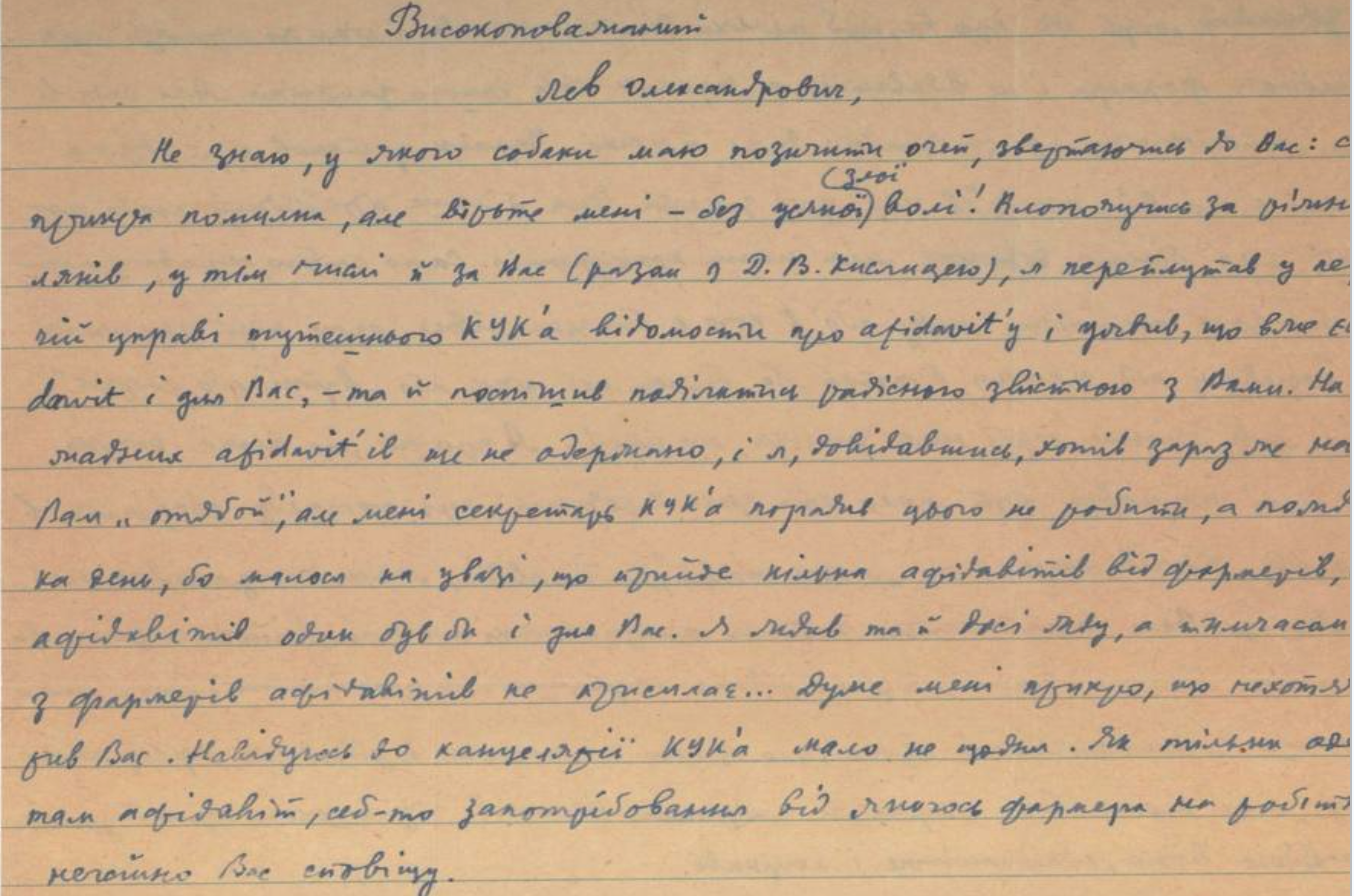 Високоповажаний
Лев Олександрович,
Не знаю, у якого собаки маю позичити очей, звертаючись до Вас: с
прикра помилка, але вірьте мені – без усякої (злої) волі! Клопочучись за різних
лянів, у тім числі й за Вас (разом з Д. В. Кислицею), я переплутав у
чій управі тутешнього КУК'а відомости про afidavit'у і уявив, що вже є
davit і для Вас, – та й поспішив поділитись радісною звісткою з Вами. На
жадних afidavit'ів ще не одержано, і я, довідавшись, хотів зараз же на
Вам „отядбой", але мені секретарь КУК'а порадив цього не робити, а пожд
ка день, бо малося на увазі, що прийде кілька афідавітів від фармерів,
афідавітів один був би і для Вас. Я ждав та й досі жду, а тимчасом
з фармерів афідавітів не присилає... Дуже мені прикро, що нехотя
рив Вас. Навідуюсь до канцелярії КУК'а мало не щодня. Як тільки оде
там афідавіт, себ-то запотрібовання від якогось фармера на робітн
негайно Вас сповіщу.